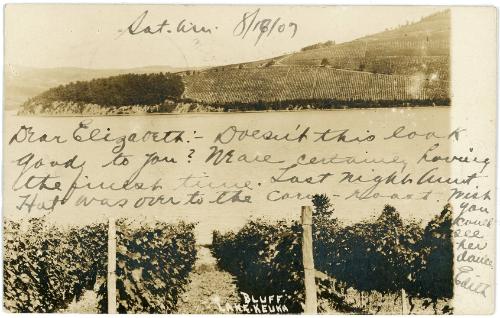 Sat. Am. 8/18/07
Dear Elizabeth:- Doesn't this look
good to you? We are certainly having
the finest time. Last night Aunt
Hat was over to the corn-roast.
Wish
you
could
see
her
dance
Edith
BLUFF
LAKE KEUKA